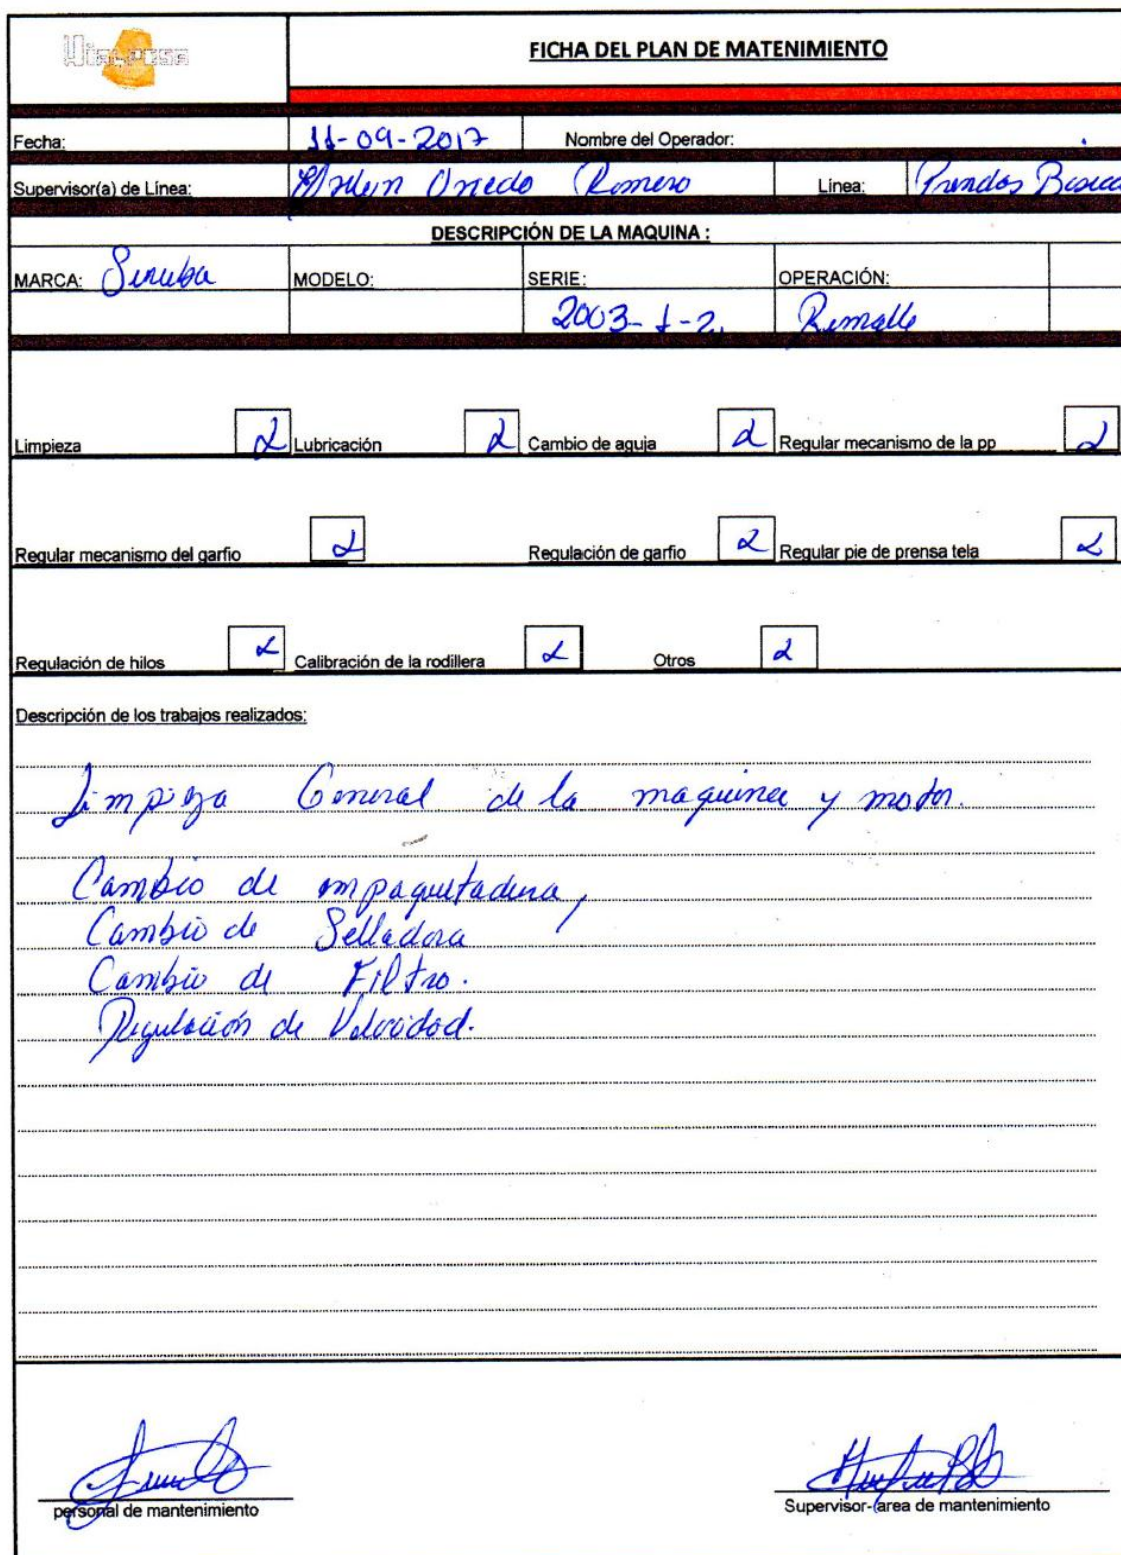 FICHA DEL PLAN DE MATENIMIENTO
Fecha: 11-09-2017 Nombre del Operador:
Supervisor(a) de Línea: Romero Línea: Prendas
DESCRIPCIÓN DE LA MAQUINA :
MARCA: Siruba MODELO: SERIE: OPERACIÓN:
2003-1-2. Remalle
Limpieza Lubricación Cambio de aguja Regular mecanismo de la pp
Regular mecanismo del garfio Regulación de garfio Regular pie de prensa tela
Regulación de hilos Calibración de la rodillera Otros
Descripción de los trabajos realizados:
Limpieza General de la maquina y motor.
Cambio de empaquetadura,
Cambio de Selladora
Cambio de Filtro.
Regulación de Velocidad.
personal de mantenimiento Supervisor-area de mantenimiento